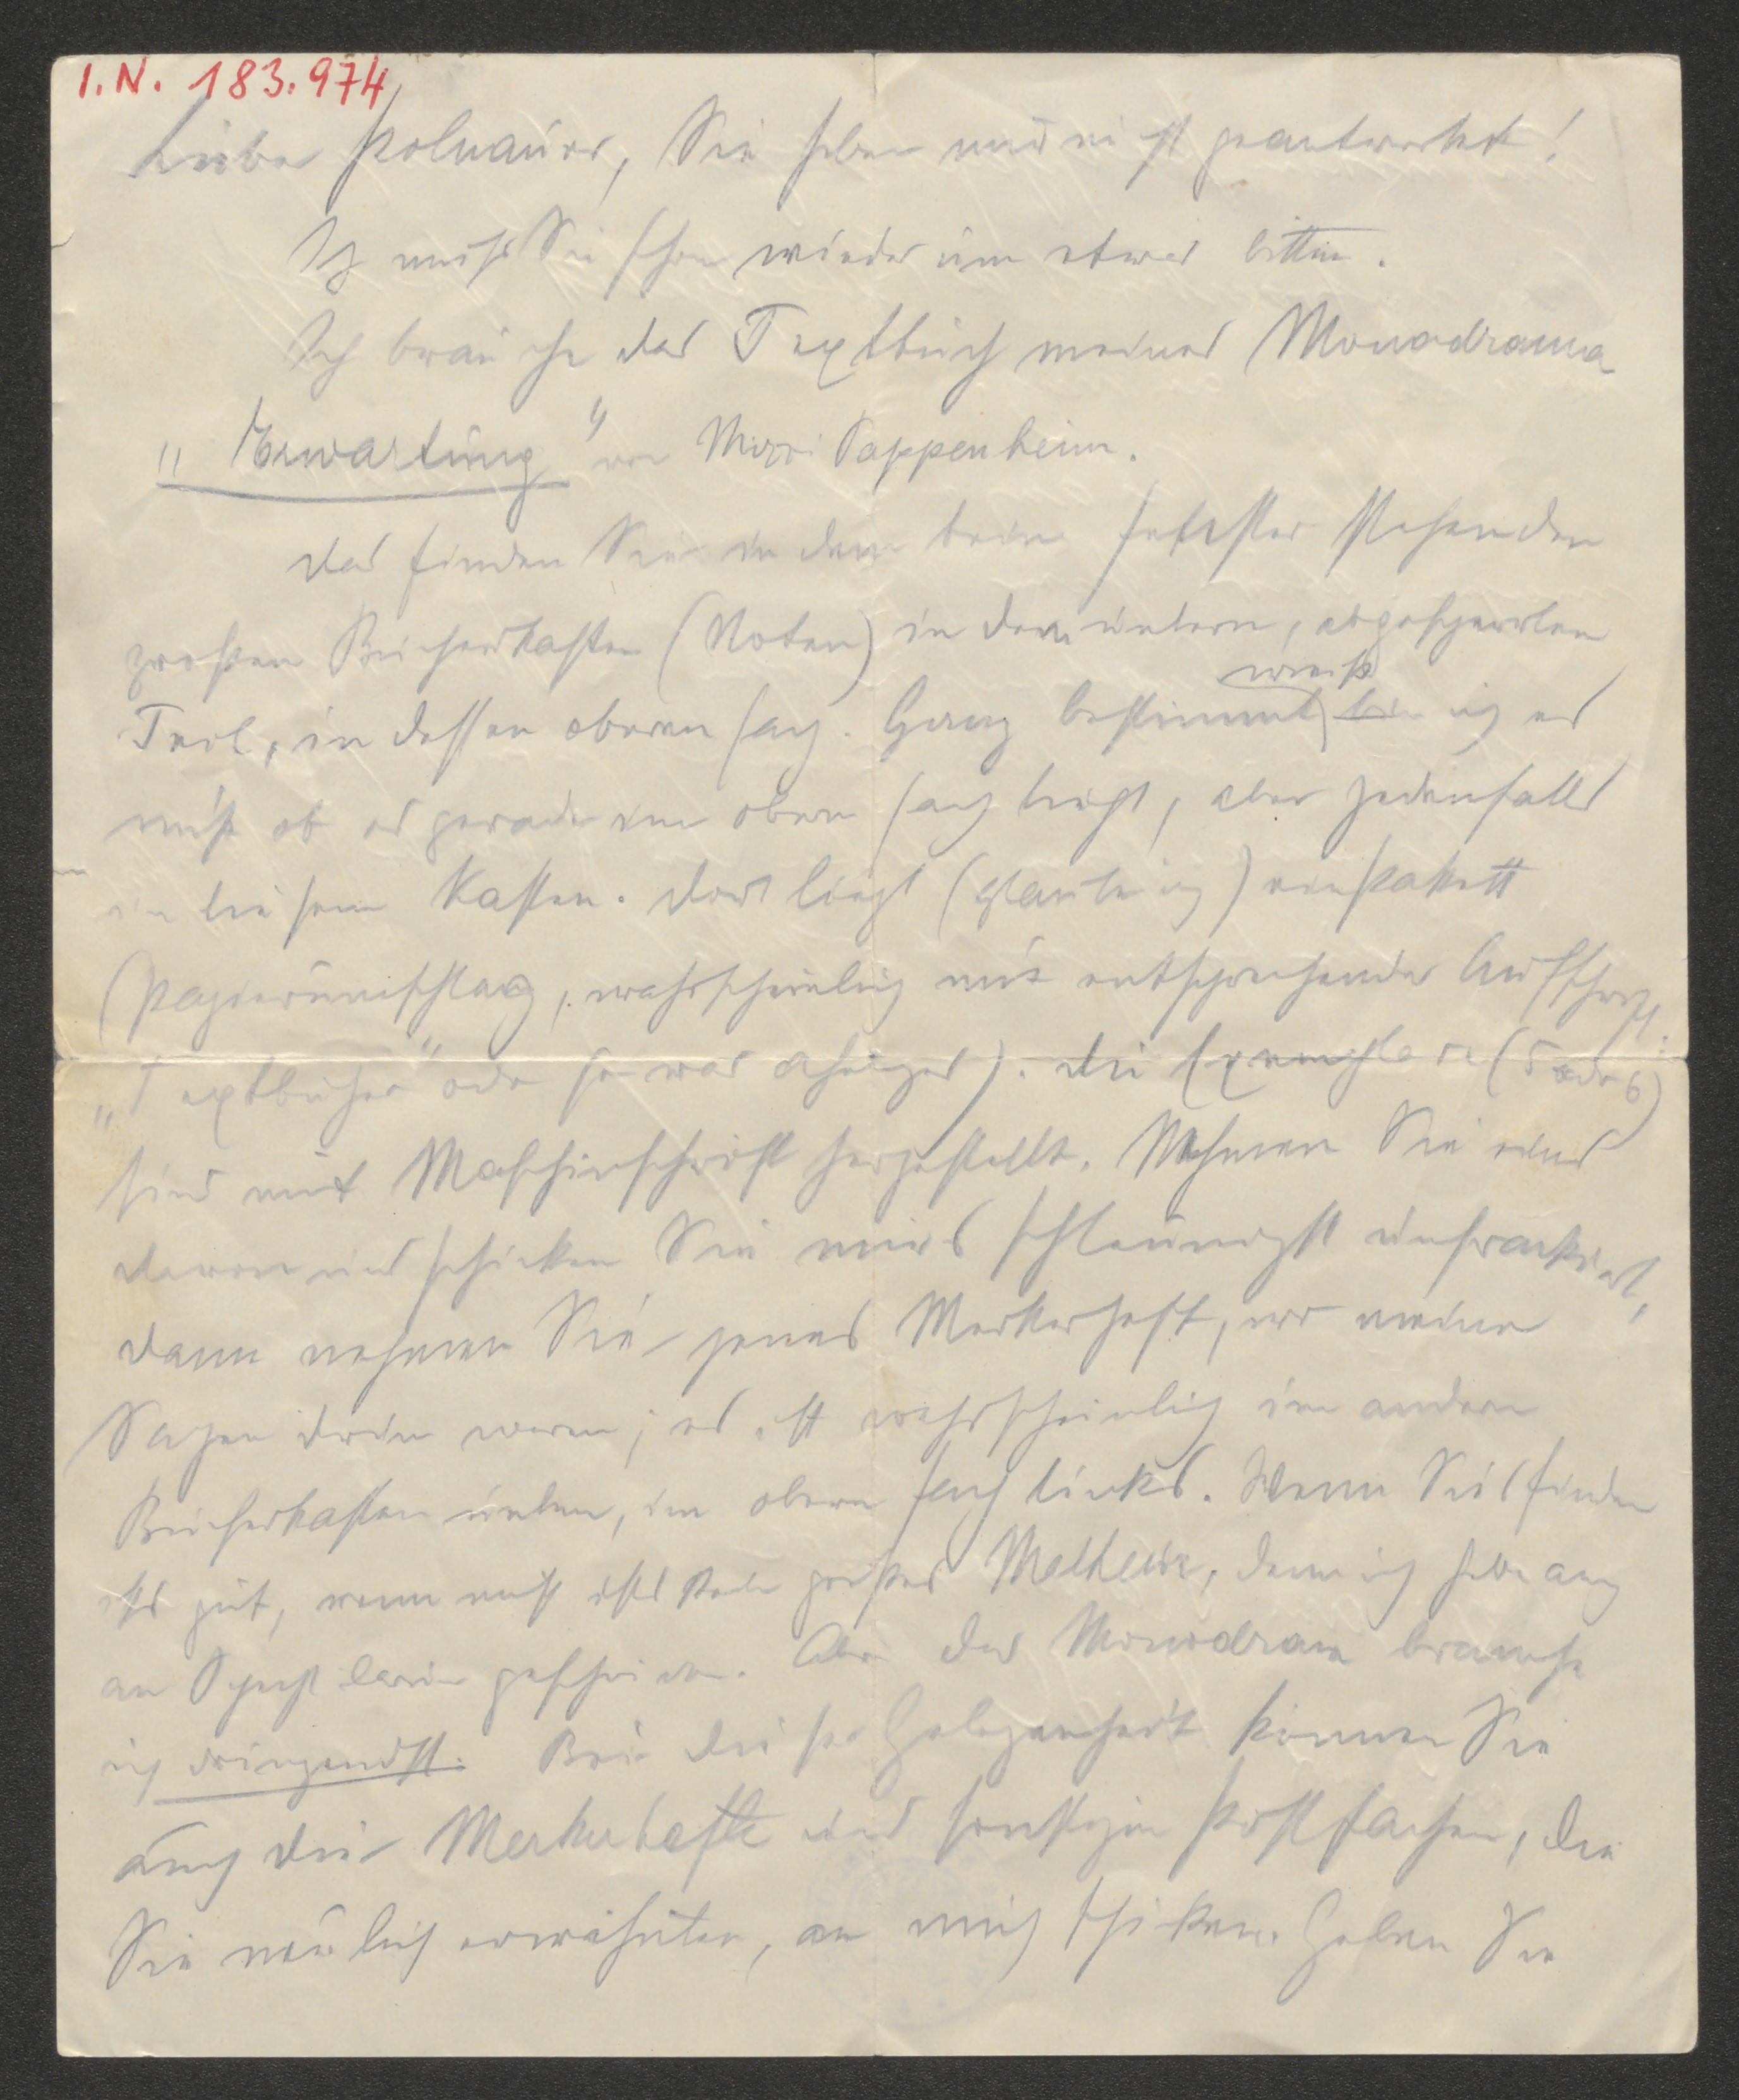 I.N. 183.974
Lieber Polnauer, Sie haben mir nicht geantwortet!
Ich muß Sie schon wieder um etwas bitten.
Ich brauche das Textbuch meines Monodrama
„Erwartung" von Mizzi Pappenheim.
Das finden Sie in dem beim Fenster stehenden
großen Bücherkasten (Noten) in dem untern, abgesperrten
weiß
Teil, in dessen oberen Fach. Ganz bestimmt bin ich es
nicht ob es gerade im obern Fach liegt, aber jedenfalls
in diesem Kasten. Dort liegt (glaube ich) ein Pakett
(Papierumschlag, wahrscheinlich mit entsprechender Aufschrift:
„Textbücher" oder so was ähnliches). Die Exemplare (5 oder 6)
sind mit Maschinschrift hergestellt. Nehmen Sie eines
davon und schicken Sie mirs schleunigst unfrankiert,
dann nehmen Sie jenes Merkerheft, wo meine
Sachen drin waren; es ist wahrscheinlich im andern
Bücherkasten unten, im obern Fach links. Wenn Sies finden
ists gut, wenn nicht ists kein großes Malheur, denn ich habe auch
an Specht darum geschrieben. Aber das Monodram brauche
ich dringendst. Bei dieser Gelegenheit können Sie
auch die Merkerhefte und sonstigen Postsachen, die
Sie neulich erwähnten, an mich schicken. Haben Sie